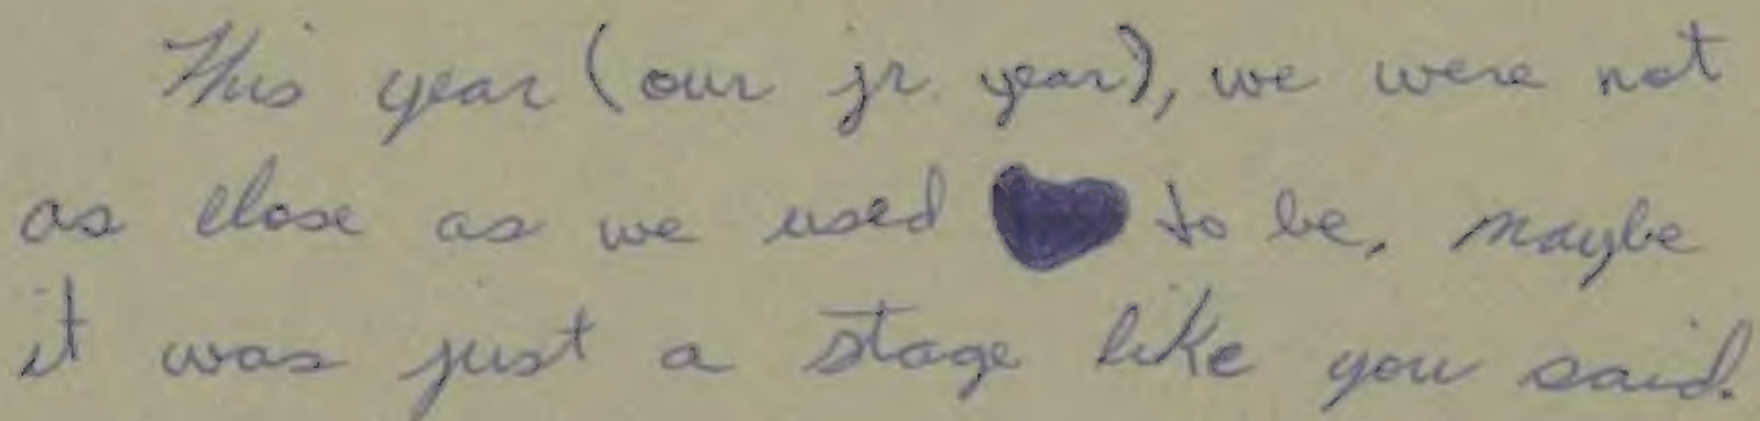 This year (our jr. year), we were not
as close as we used to be, maybe
it was just a stage like you said.